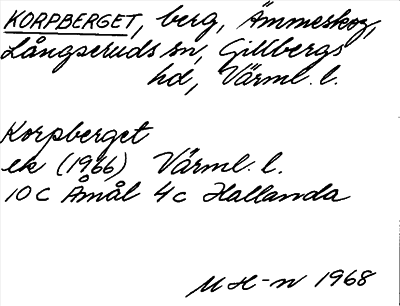 KORPBERGET, berg, Ämmeskog,
Långseruds sn, Gillbergs
hd, Värml. l.
Korpberget
ek (1966) Värml. l.
10 C Åmål 4 c Hallanda
M H-n 1968